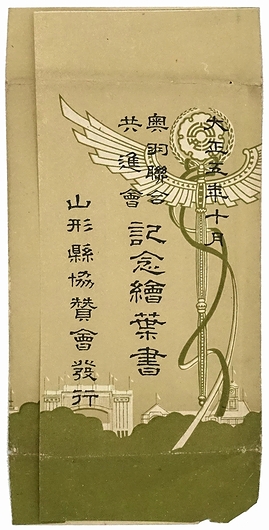 大正五年十月
奥羽聯合
共進會
記念繪葉書
山形縣協賛會發行